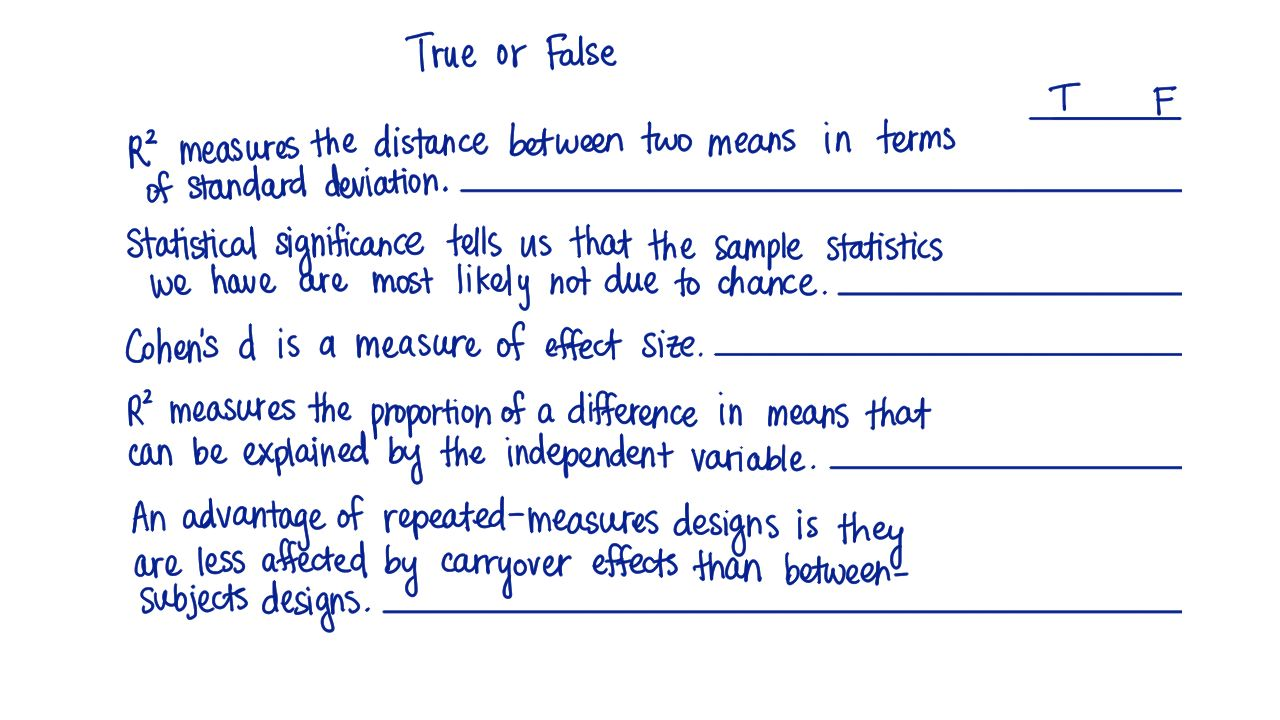 True or False
T F
R² measures the distance between two means in terms
of standard deviation.
Statistical significance tells us that the sample statistics
we have are most likely not due to chance.
Cohen's d is a measure of effect size.
R² measures the proportion of a difference in means that
can be explained by the independent variable.
An advantage of repeated-measures designs is they
are less affected by carryover effects than between-
subjects designs.